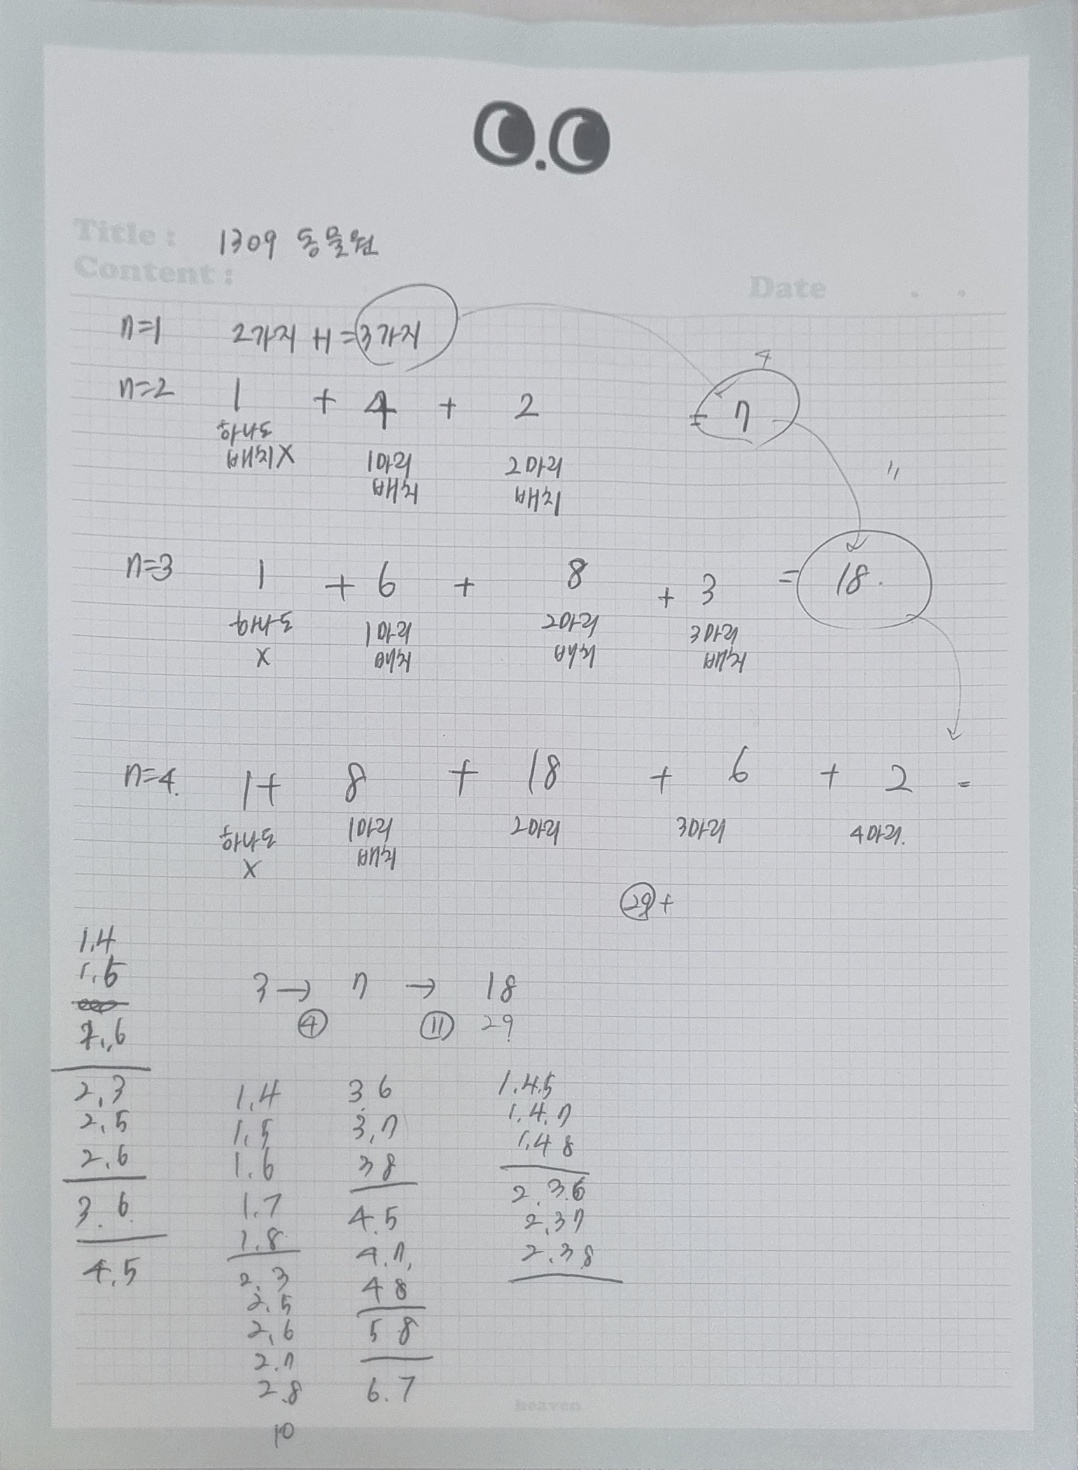 Title : 1309 동물원
Content :
Date . .
n=1 2가지 +1 = 3가지
4
n=2 1 + 4 + 2 = 7
하나도 배치X
1마리 배치
2마리 배치
11
n=3 1 + 6 + 8 + 3 = 18.
하나도 X
1마리 배치
2마리 배치
3마리 배치
n=4. 1 + 8 + 18 + 6 + 2 =
하나도 X
1마리 배치
2마리
3마리
4마리.
29 +
3 → 7 → 18
4 11 29
1,4
1,5
1,6
2,3
2,5
2,6
3.6
4,5
1,4
1,5
1.6
1.7
1.8
2,3
2,5
2,6
2.7
2.8
10
3 6
3,7
3 8
4.5
4.7,
4 8
5 8
6.7
1.4.5
1.4.7
1.4 8
2.3.6
2.37
2.38
heaven